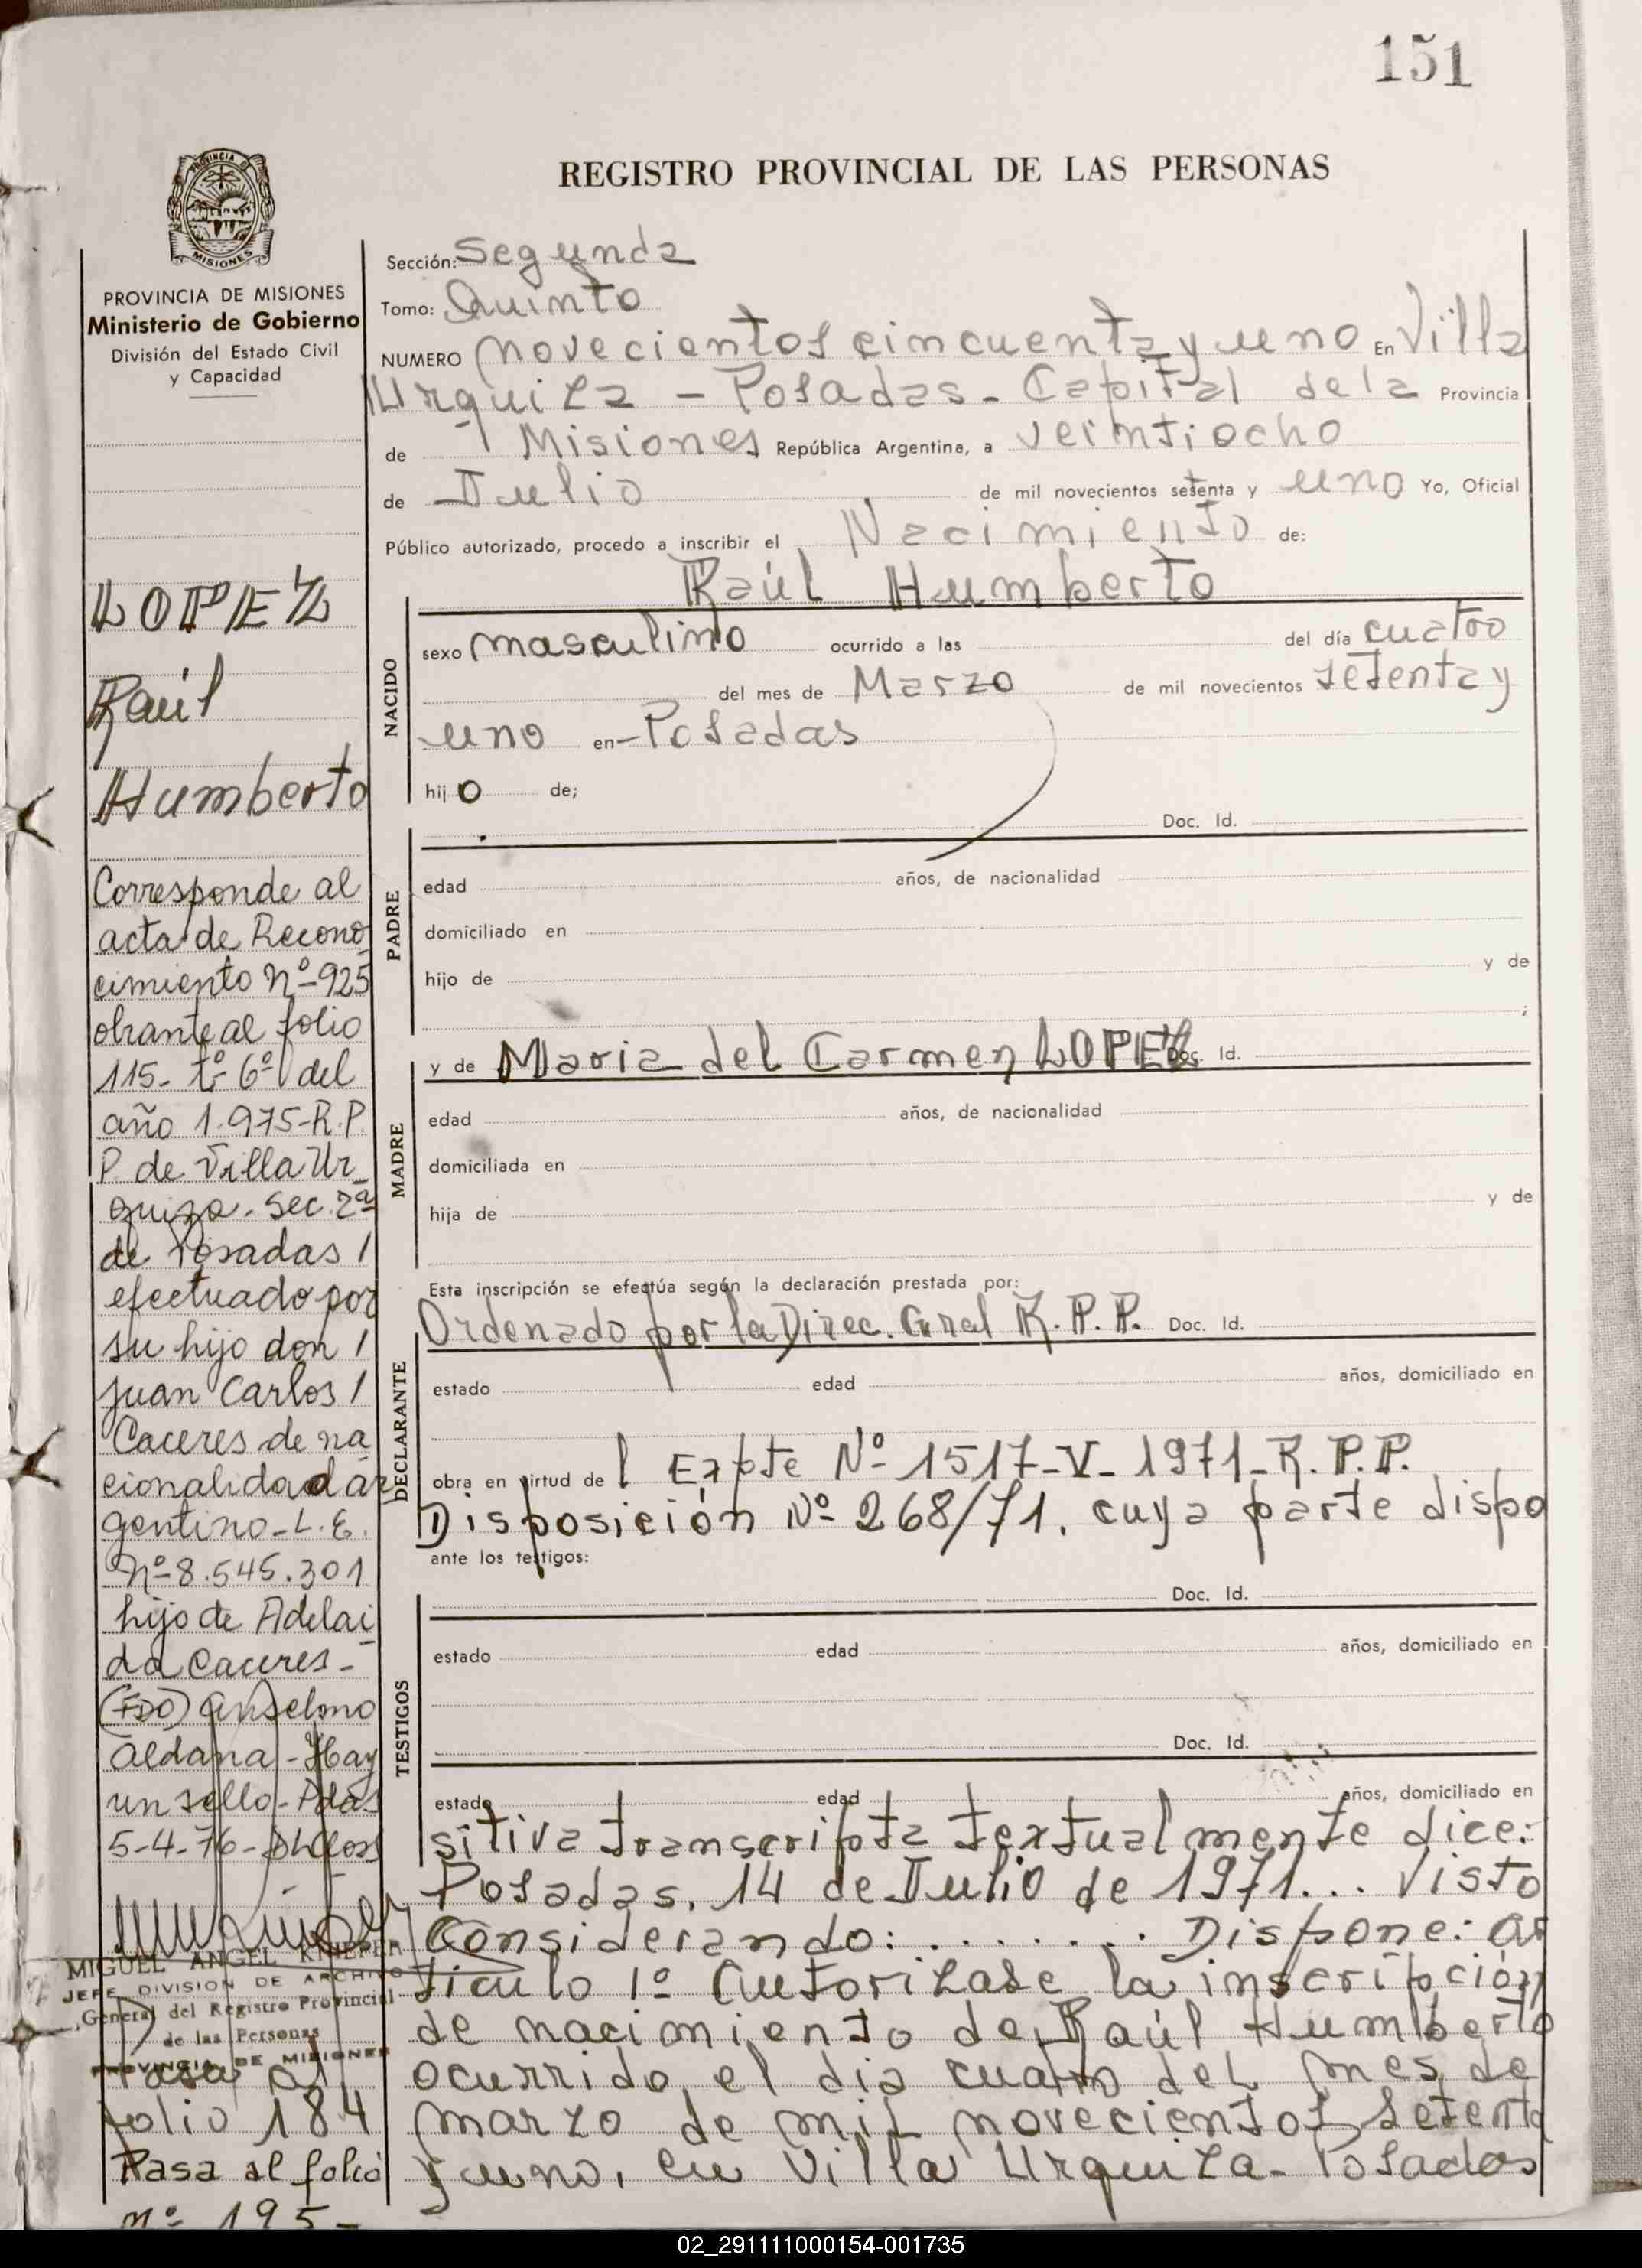 151
REGISTRO PROVINCIAL DE LAS PERSONAS
PROVINCIA DE
MISIONES
PROVINCIA DE MISIONES
Ministerio de Gobierno
División del Estado Civil
y Capacidad
LOPEZ
Raúl
Humberto
Corresponde al
acta de Recono
cimiento nº 925
obrante al folio
115- tº 6º del
año 1.975-R.P.
P. de Villa Ur_
quiza. Sec. 2ª
de Posadas /
efectuado por
su hijo don /
Juan Carlos /
Caceres de na
cionalidad ar
gentino-L.E.
nº 8.545.301
hijo de Adelai
da Caceres-
(FDO) Anselmo
Aldana-Hay
un sello-Pdas
5-4-76-
MIGUEL ANGEL
JEFE DIVISION DE ARCHIVO
General del Registro Provincial
de las Personas
PROVINCIA DE MISIONES
Pasa al
folio 184
Pasa al folio
nº 195-
Sección: Segunda
Tomo: Quinto
NUMERO novecientos cincuenta y uno En Villa
Urquiza - Posadas - Capital de la Provincia
de Misiones República Argentina, a veintiocho
de Julio de mil novecientos setenta y uno Yo, Oficial
Público autorizado, procedo a inscribir el Nacimiento de:
Raúl Humberto
NACIDO
sexo masculino ocurrido a las del día cuatro
del mes de Marzo de mil novecientos setenta y
uno en-Posadas
hijo de;
Doc. Id.
PADRE
edad años, de nacionalidad
domiciliado en
hijo de y de
;
MADRE
y de Maria del Carmen LOPEZ Doc. Id.
edad años, de nacionalidad
domiciliada en
hija de y de
Esta inscripción se efectúa según la declaración prestada por:
DECLARANTE
Ordenado por la Direc. Gral R.P.P. Doc. Id.
estado edad años, domiciliado en
obra en virtud del Expte Nº 1517-V-1971-R.P.P.
Disposición Nº 268/71, cuya parte dispo
ante los testigos:
TESTIGOS
Doc. Id.
estado edad años, domiciliado en
Doc. Id.
estado edad años, domiciliado en
sitiva transcripta textualmente dice:
Posadas, 14 de Julio de 1971... Visto
Considerando: ........ Dispone: Ar
ticulo 1º Autorizase la inscripción
de nacimiento de Raúl Humberto
ocurrido el dia cuatro del mes de
marzo de mil novecientos setenta
y uno, en Villa Urquiza- Posadas
02_291111000154-001735